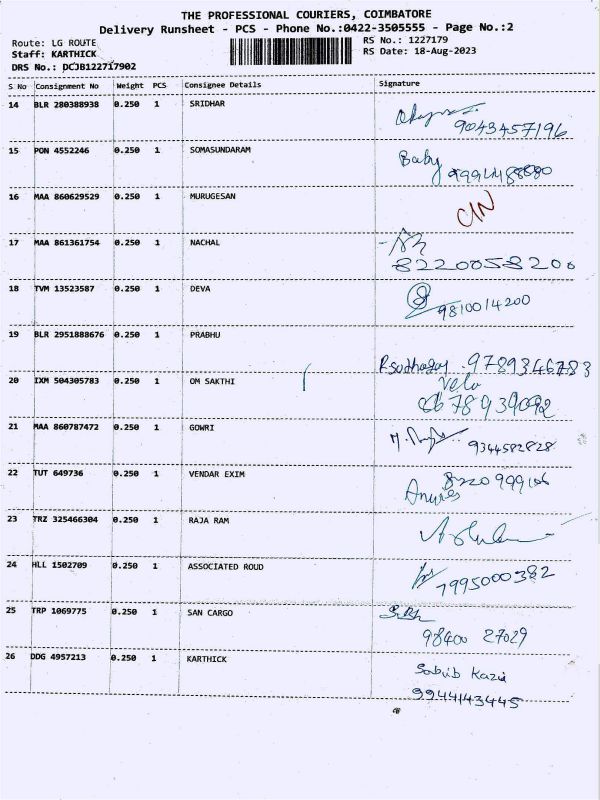 THE PROFESSIONAL COURIERS, COIMBATORE
Delivery Runsheet - PCS - Phone No.:0422-3505555 - Page No.:2
Route: LG ROUTE
RS No.: 1227179
Staff: KARTHICK
RS Date: 18-Aug-2023
DRS No.: DCJB122717902
S No Consignment No Weight PCS Consignee Details Signature
14 BLR 280388938 0.250 1 SRIDHAR
9043457196
15 PON 4552246 0.250 1 SOMASUNDARAM Baby
16 MAA 860629529 0.250 1 MURUGESAN
17 MAA 861361754 0.250 1 NACHAL
8220058200
18 TVM 13523587 0.250 1 DEVA
9810014200
19 BLR 2951888676 0.250 1 PRABHU
9789346783
20 IXM 504305783 0.250 1 OM SAKTHI Velu
21 MAA 860787472 0.250 1 GOWRI
9344582828
22 TUT 649736 0.250 1 VENDAR EXIM
23 TRZ 325466304 0.250 1 RAJA RAM
24 HLL 1502709 0.250 1 ASSOCIATED ROUD
7995000382
25 TRP 1069775 0.250 1 SAN CARGO
98400 27029
26 DDG 4957213 0.250 1 KARTHICK
9944143445